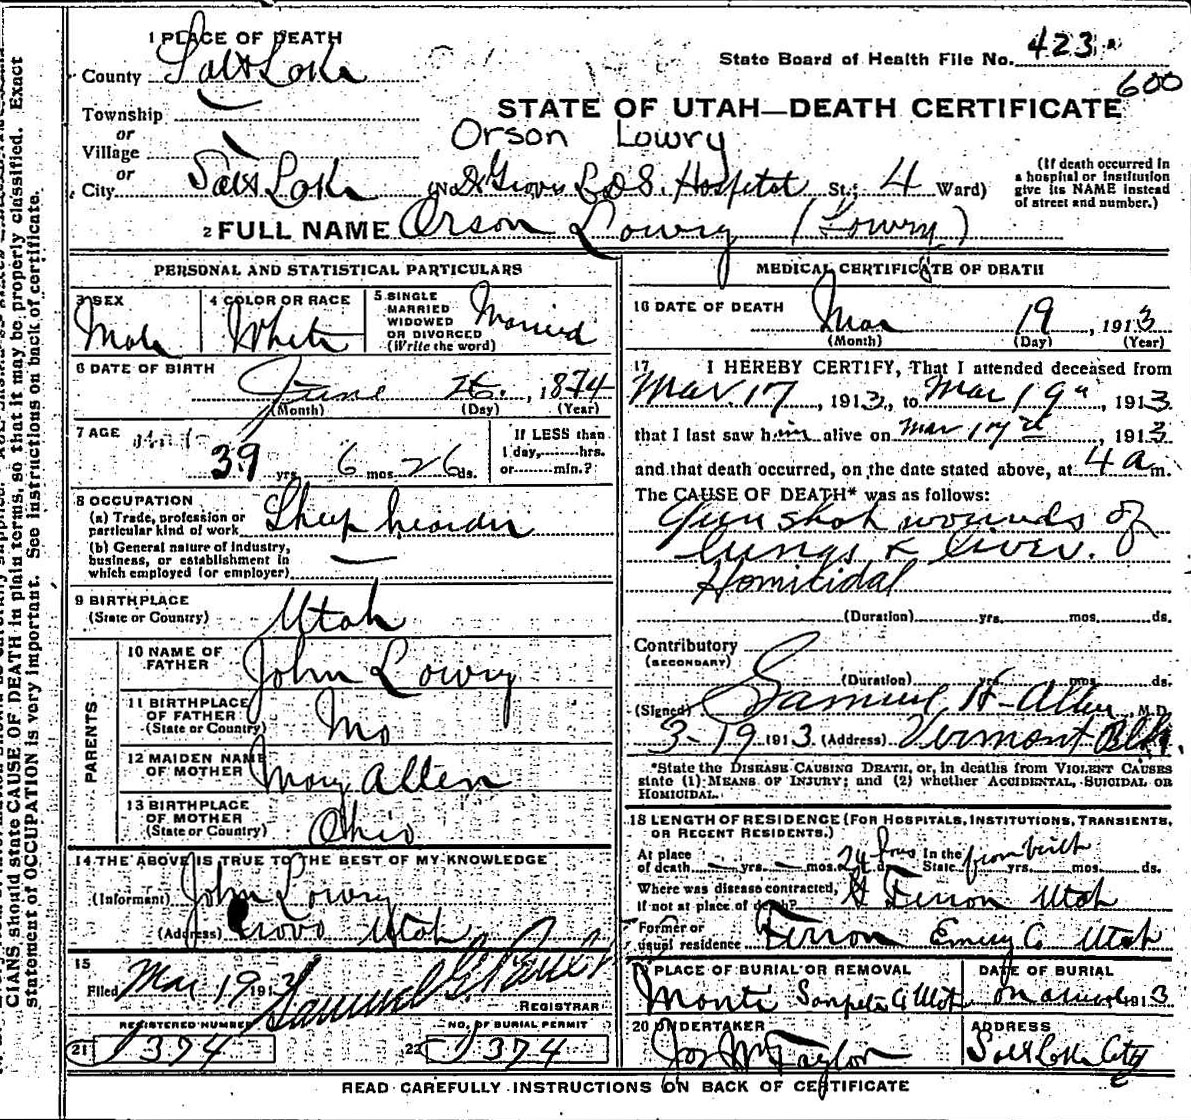 1 PLACE OF DEATH
County Salt Lake
State Board of Health File No. 423
600
Township
STATE OF UTAH—DEATH CERTIFICATE
or
Village
Orson Lowry
or
City Salt Lake (No. Dr Groves L.D.S. Hospital St.; 4 Ward)
(If death occurred in a hospital or institution give its NAME instead of street and number.)
2 FULL NAME Orson Lowry (Lowry)
PERSONAL AND STATISTICAL PARTICULARS
3 SEX Male
4 COLOR OR RACE White
5 SINGLE MARRIED WIDOWED OR DIVORCED (Write the word) Married
6 DATE OF BIRTH June 26, 1874
(Month) (Day) (Year)
7 AGE 39 yrs. 6 mos. 26 ds.
If LESS than 1 day, hrs. or min.?
8 OCCUPATION
(a) Trade, profession or particular kind of work Sheep hearder
(b) General nature of industry, business, or establishment in which employed (or employer)
9 BIRTHPLACE (State or Country) Utah
PARENTS
10 NAME OF FATHER John Lowry
11 BIRTHPLACE OF FATHER (State or Country) Mo
12 MAIDEN NAME OF MOTHER Mary Allen
13 BIRTHPLACE OF MOTHER (State or Country) Ohio
14 THE ABOVE IS TRUE TO THE BEST OF MY KNOWLEDGE
(Informant) John Lowry
(Address) Provo Utah
15
Filed Mar 19 1913 Samuel G. Paul
REGISTRAR
REGISTERED NUMBER
NO. OF BURIAL PERMIT
21 374
22 374
MEDICAL CERTIFICATE OF DEATH
16 DATE OF DEATH Mar 19, 1913
(Month) (Day) (Year)
17 I HEREBY CERTIFY, That I attended deceased from
Mar. 17, 1913, to Mar 19", 1913
that I last saw him alive on Mar 19th, 1913
and that death occurred, on the date stated above, at 4 a m.
The CAUSE OF DEATH* was as follows:
Gun shot wounds of
lungs & liver.
Homicidal
(Duration) yrs. mos. ds.
Contributory
(SECONDARY)
(Duration) yrs. mos. ds.
(Signed) Samuel H. Allen, M.D.
3-19 1913 (Address) Vermont Bldg.
*State the DISEASE CAUSING DEATH, or, in deaths from VIOLENT CAUSES
state (1) MEANS OF INJURY; and (2) whether ACCIDENTAL, SUICIDAL OR
HOMICIDAL.
18 LENGTH OF RESIDENCE (FOR HOSPITALS, INSTITUTIONS, TRANSIENTS,
OR RECENT RESIDENTS.)
At place of death yrs. mos. 24 hours In the State from birth yrs. mos. ds.
Where was disease contracted, if not at place of death? Ferron Utah
Former or usual residence Ferron Emery Co Utah
19 PLACE OF BURIAL OR REMOVAL
Manti Sanpete Co Utah
DATE OF BURIAL
on arrival 1913
20 UNDERTAKER
Jos Wm Taylor
ADDRESS
Salt Lake City
READ CAREFULLY INSTRUCTIONS ON BACK OF CERTIFICATE
CIANS should state CAUSE OF DEATH in plain terms, so that it may be properly classified. Exact
statement of OCCUPATION is very important. See instructions on back of certificate.